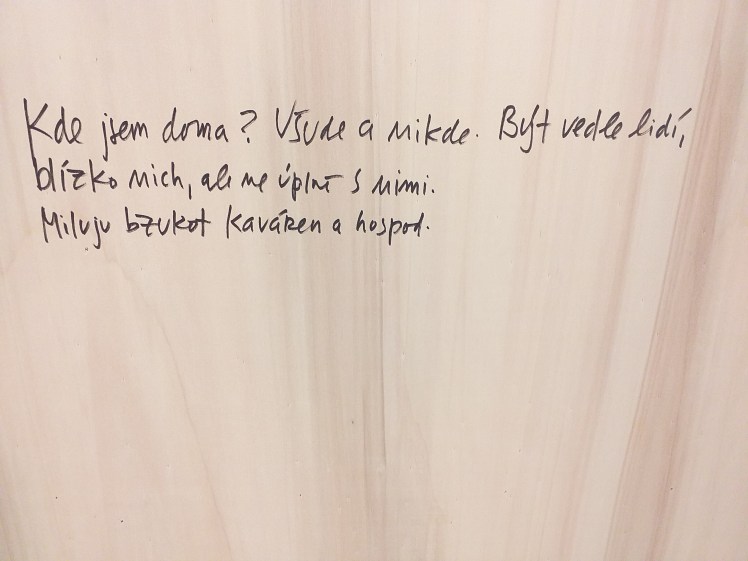 Kde jsem doma? Všude a nikde. Být vedle lidí,
blízko nich, ale ne úplně s nimi.
Miluju bzukot kaváren a hospod.